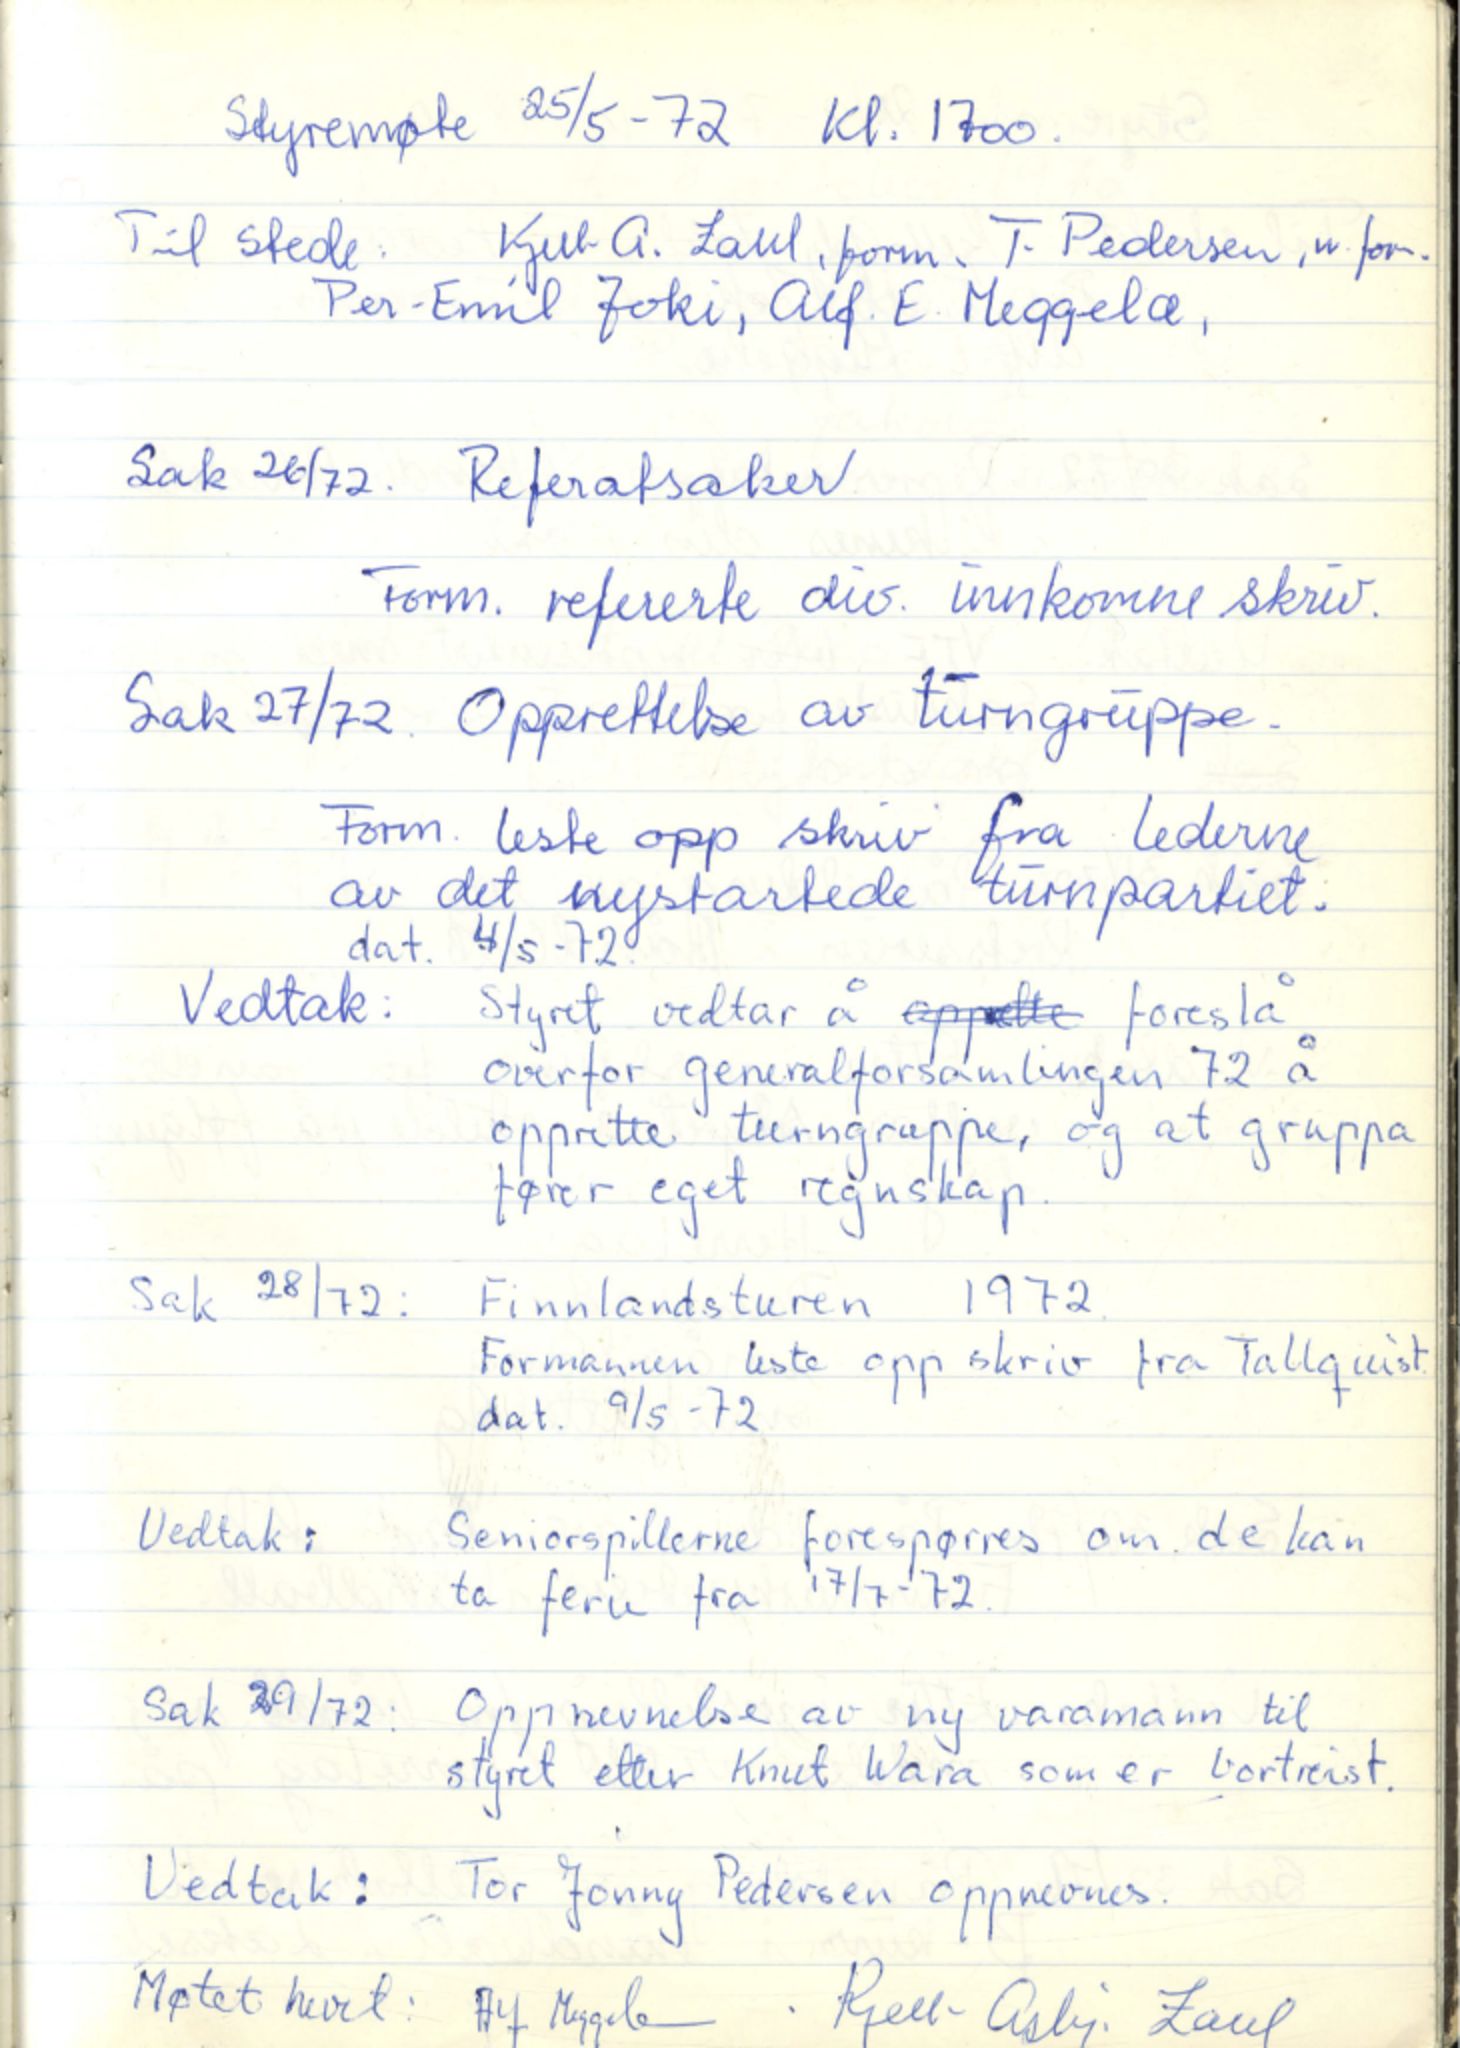 Styremøte 25/5-72 Kl. 1700.
Til stede: Kjell A. Zahl, form. T. Pedersen, n. form.
Per-Emil Joki, Alf. E. Meggelæ,
Sak 26/72. Referatsaker.
Form. refererte div. innkomne skriv.
Sak 27/72. Opprettelse av turngruppe.
Form. leste opp skriv fra lederne
av det nystartede turnpartiet.
dat. 4/5-72.
Vedtak: Styret vedtar å opprette foreslå
overfor generalforsamlingen 72 å
opprette turngruppe, og at gruppa
fører eget regnskap.
Sak 28/72: Finnlandsturen 1972.
Formannen leste opp skriv fra Tallquist.
dat. 9/5-72
Vedtak: Seniorspillerne forespørres om de kan
ta ferie fra 17/7-72.
Sak 29/72: Oppnevnelse av ny varamann til
styret etter Knut Wara som er bortreist.
Vedtak: Tor Jonny Pedersen oppnevnes.
Møtet hevet: Alf Meggelæ. Kjell Asbj. Zahl